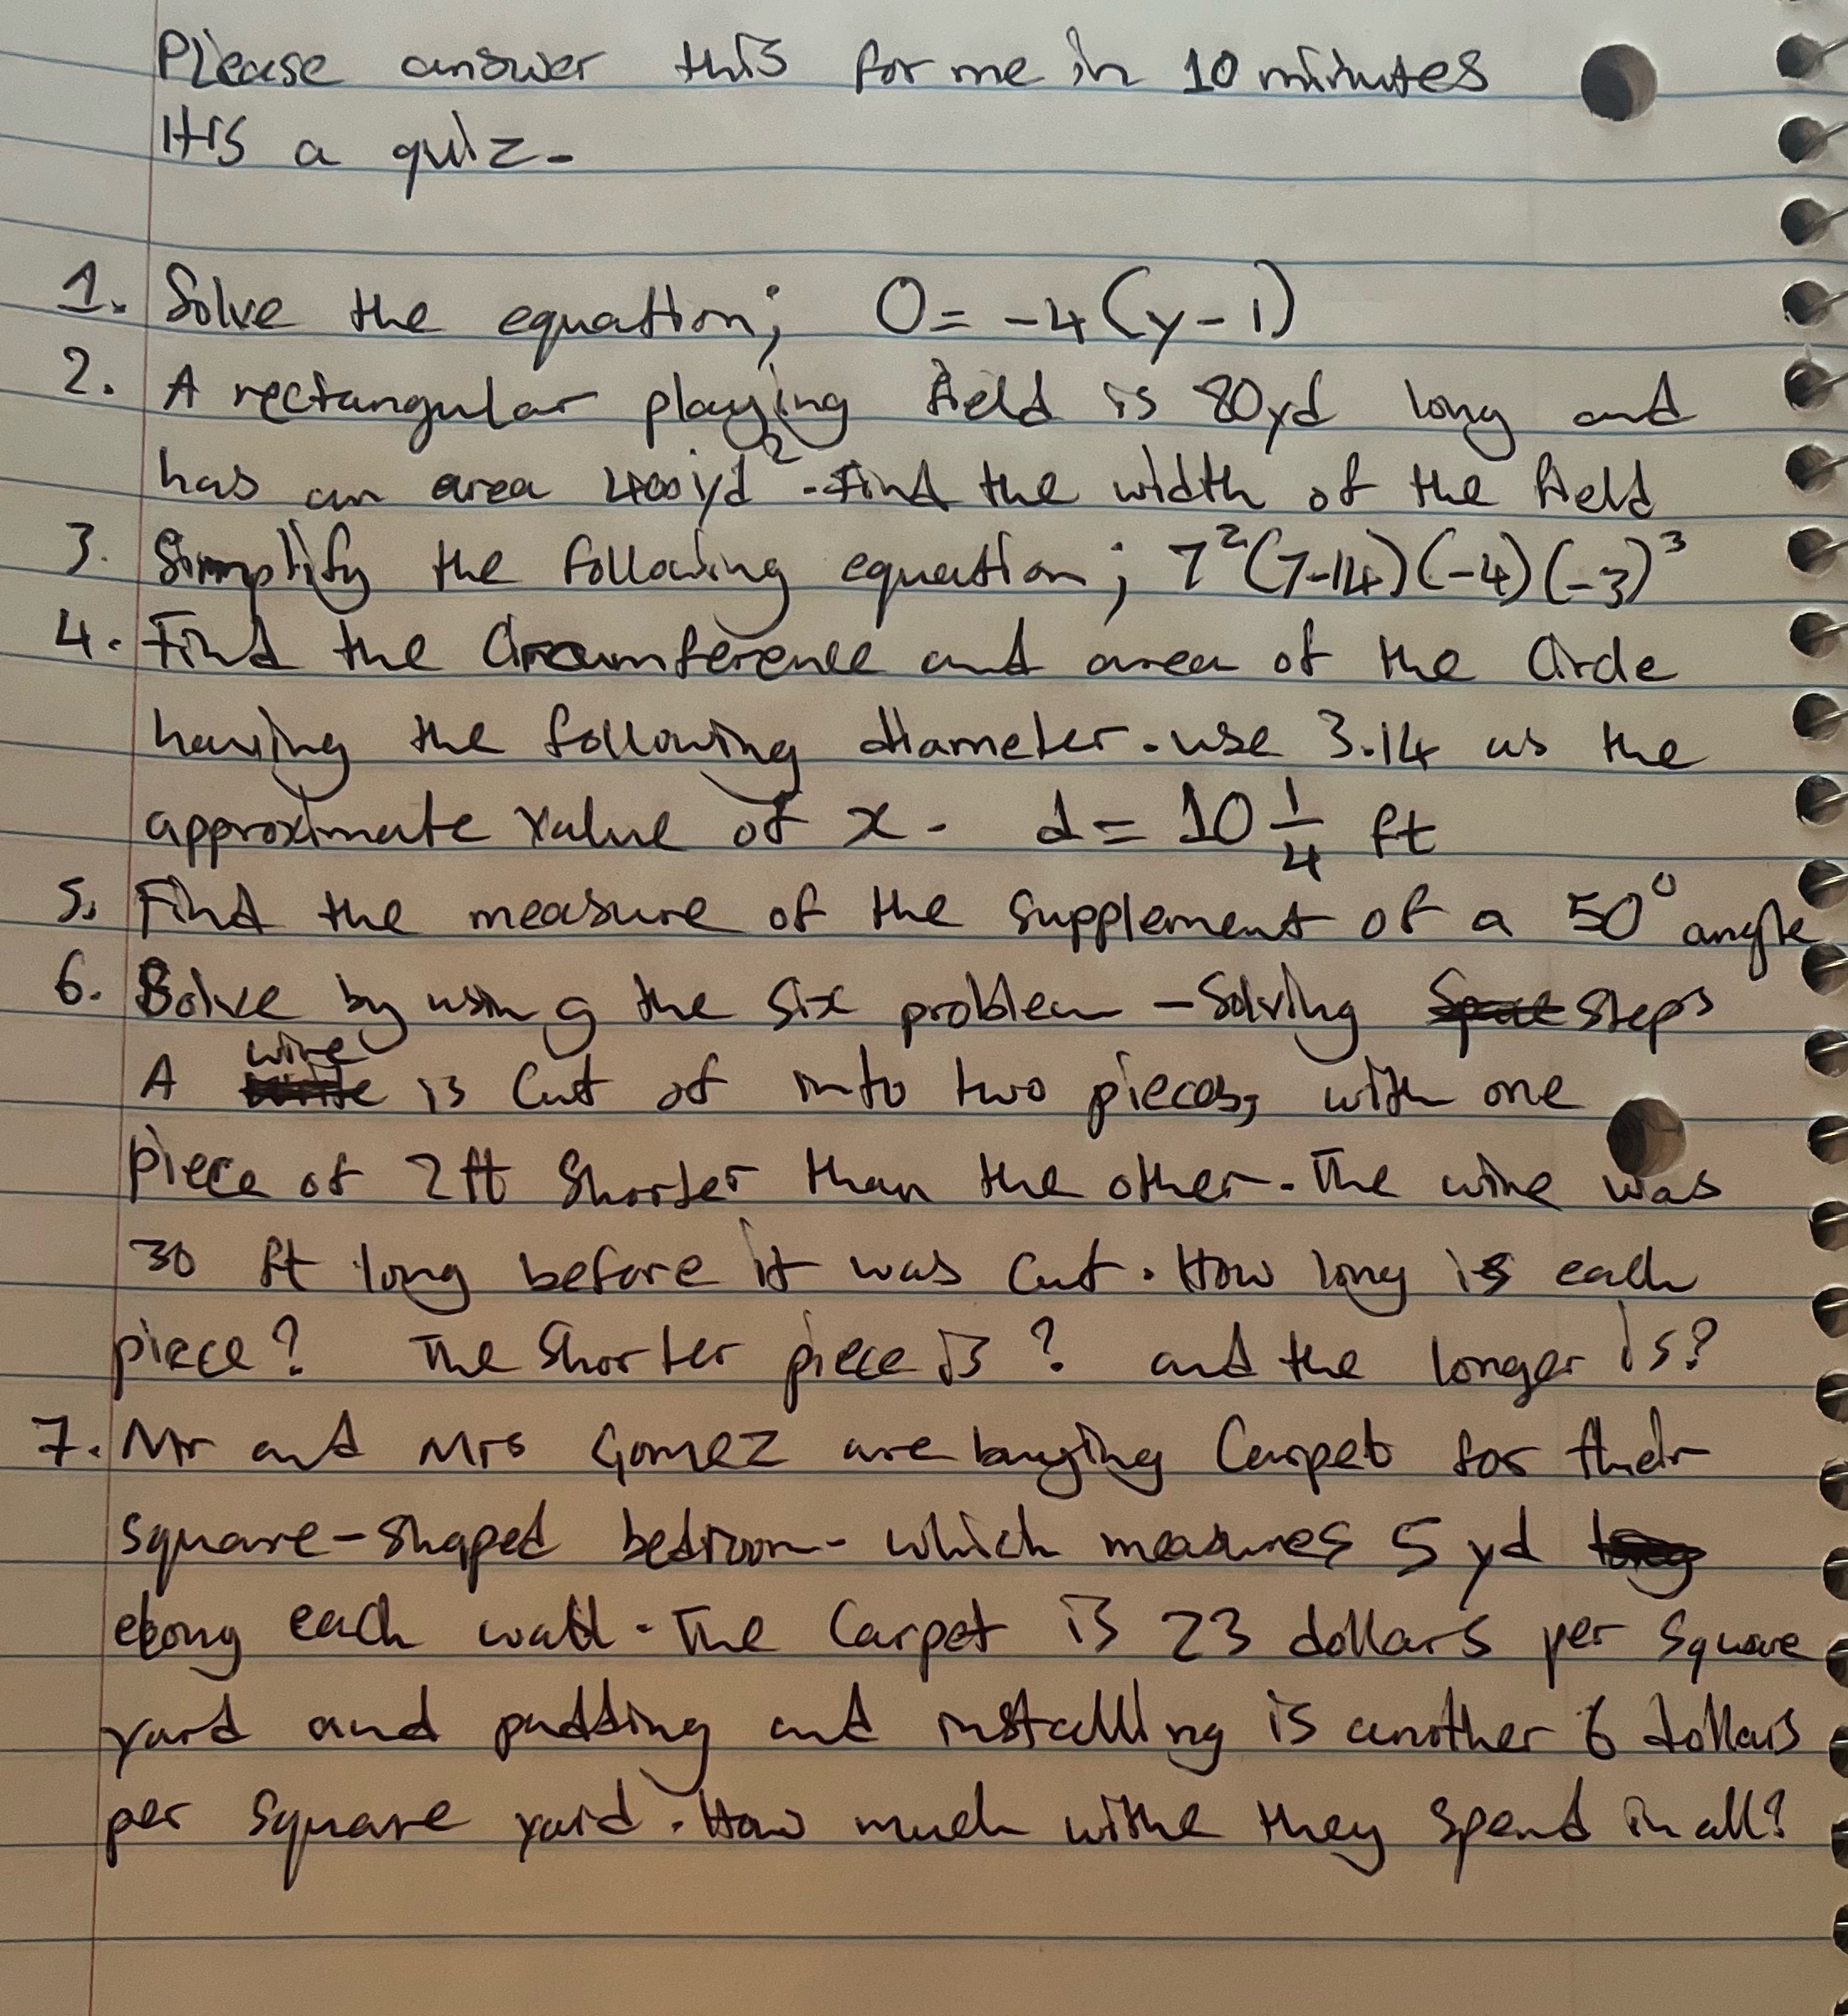 Please answer this for me in 10 minutes
It is a quiz.
1. Solve the equation; 0= -4(y-1)
2. A rectangular playing field is 80yd long and
has an area 400yd² . Find the width of the field
3. Simplify the following equation; 7²(7-14)(-4)(-3)³
4. Find the Circumference and area of the Circle
having the following diameter. use 3.14 as the
approximate value of x. d= 10 1/4 ft
5. Find the measure of the supplement of a 50° angle
6. Solve by using the six problem -Solving steps
A wire is Cut of into two pieces, with one
piece of 2ft Shorter than the other. The wire was
30 ft long before it was Cut. How long is each
piece? The Shorter piece is? and the longer is?
7. Mr and Mrs Gomez are buying Carpet for their
square-shaped bedroom- which measures 5 yd
along each wall. The Carpet is 23 dollars per square
yard and padding and installing is another 6 dollars
per square yard. How much they spend in all?